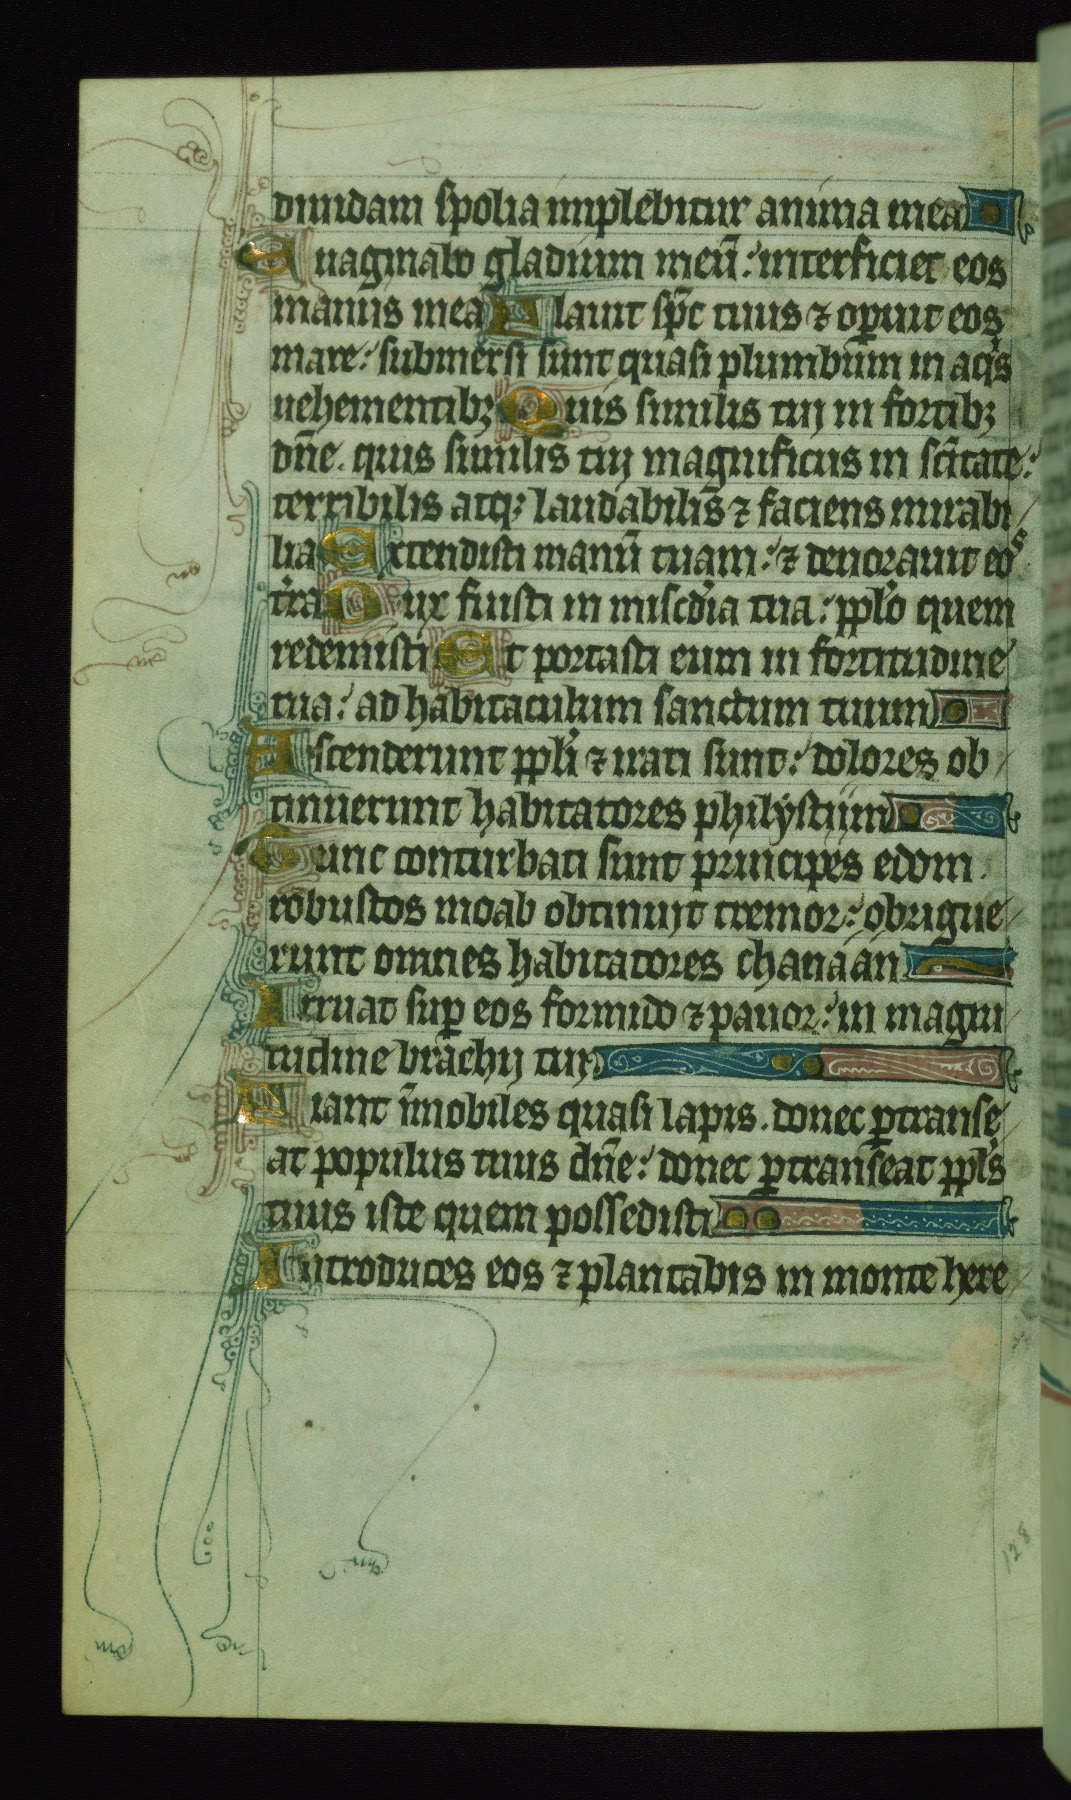 diuidam spolia implebitur anima mea
Euaginabo gladium meū: interficiet eos
manus mea Flauit sp̄c tuus ⁊ oꝑuit eos
mare: submersi sunt quasi plumbum in aqͥs
uehementibꝫ Quis similis tui in fortibꝫ
dn̄e. quis similis tui magnificus in sc̄itate:
terribilis atqꝫ laudabilis ⁊ faciens mirabi
lia Extendisti manū tuam: ⁊ deuorauit eos
t̄ra Dux fuisti in misc̄dia tua: pplo quem
redemisti Et portasti eum in fortitudine
tua: ad habitaculum sanctum tuum
Ascenderunt ppli ⁊ irati sunt: dolores ob
tinuerunt habitatores philystiim
Tunc conturbati sunt principes edom.
robustos moab obtinuit tremor: obrigue
runt omnes habitatores chanaan
Irruat suꝑ eos formido ⁊ pauor: in magni
tudine brachij tui
Fiant īmobiles quasi lapis. donec ꝑtranse
at populus tuus dn̄e: donec ꝑtranseat ppls
tuus iste quem possedisti
Introduces eos ⁊ plantabis in monte here
128